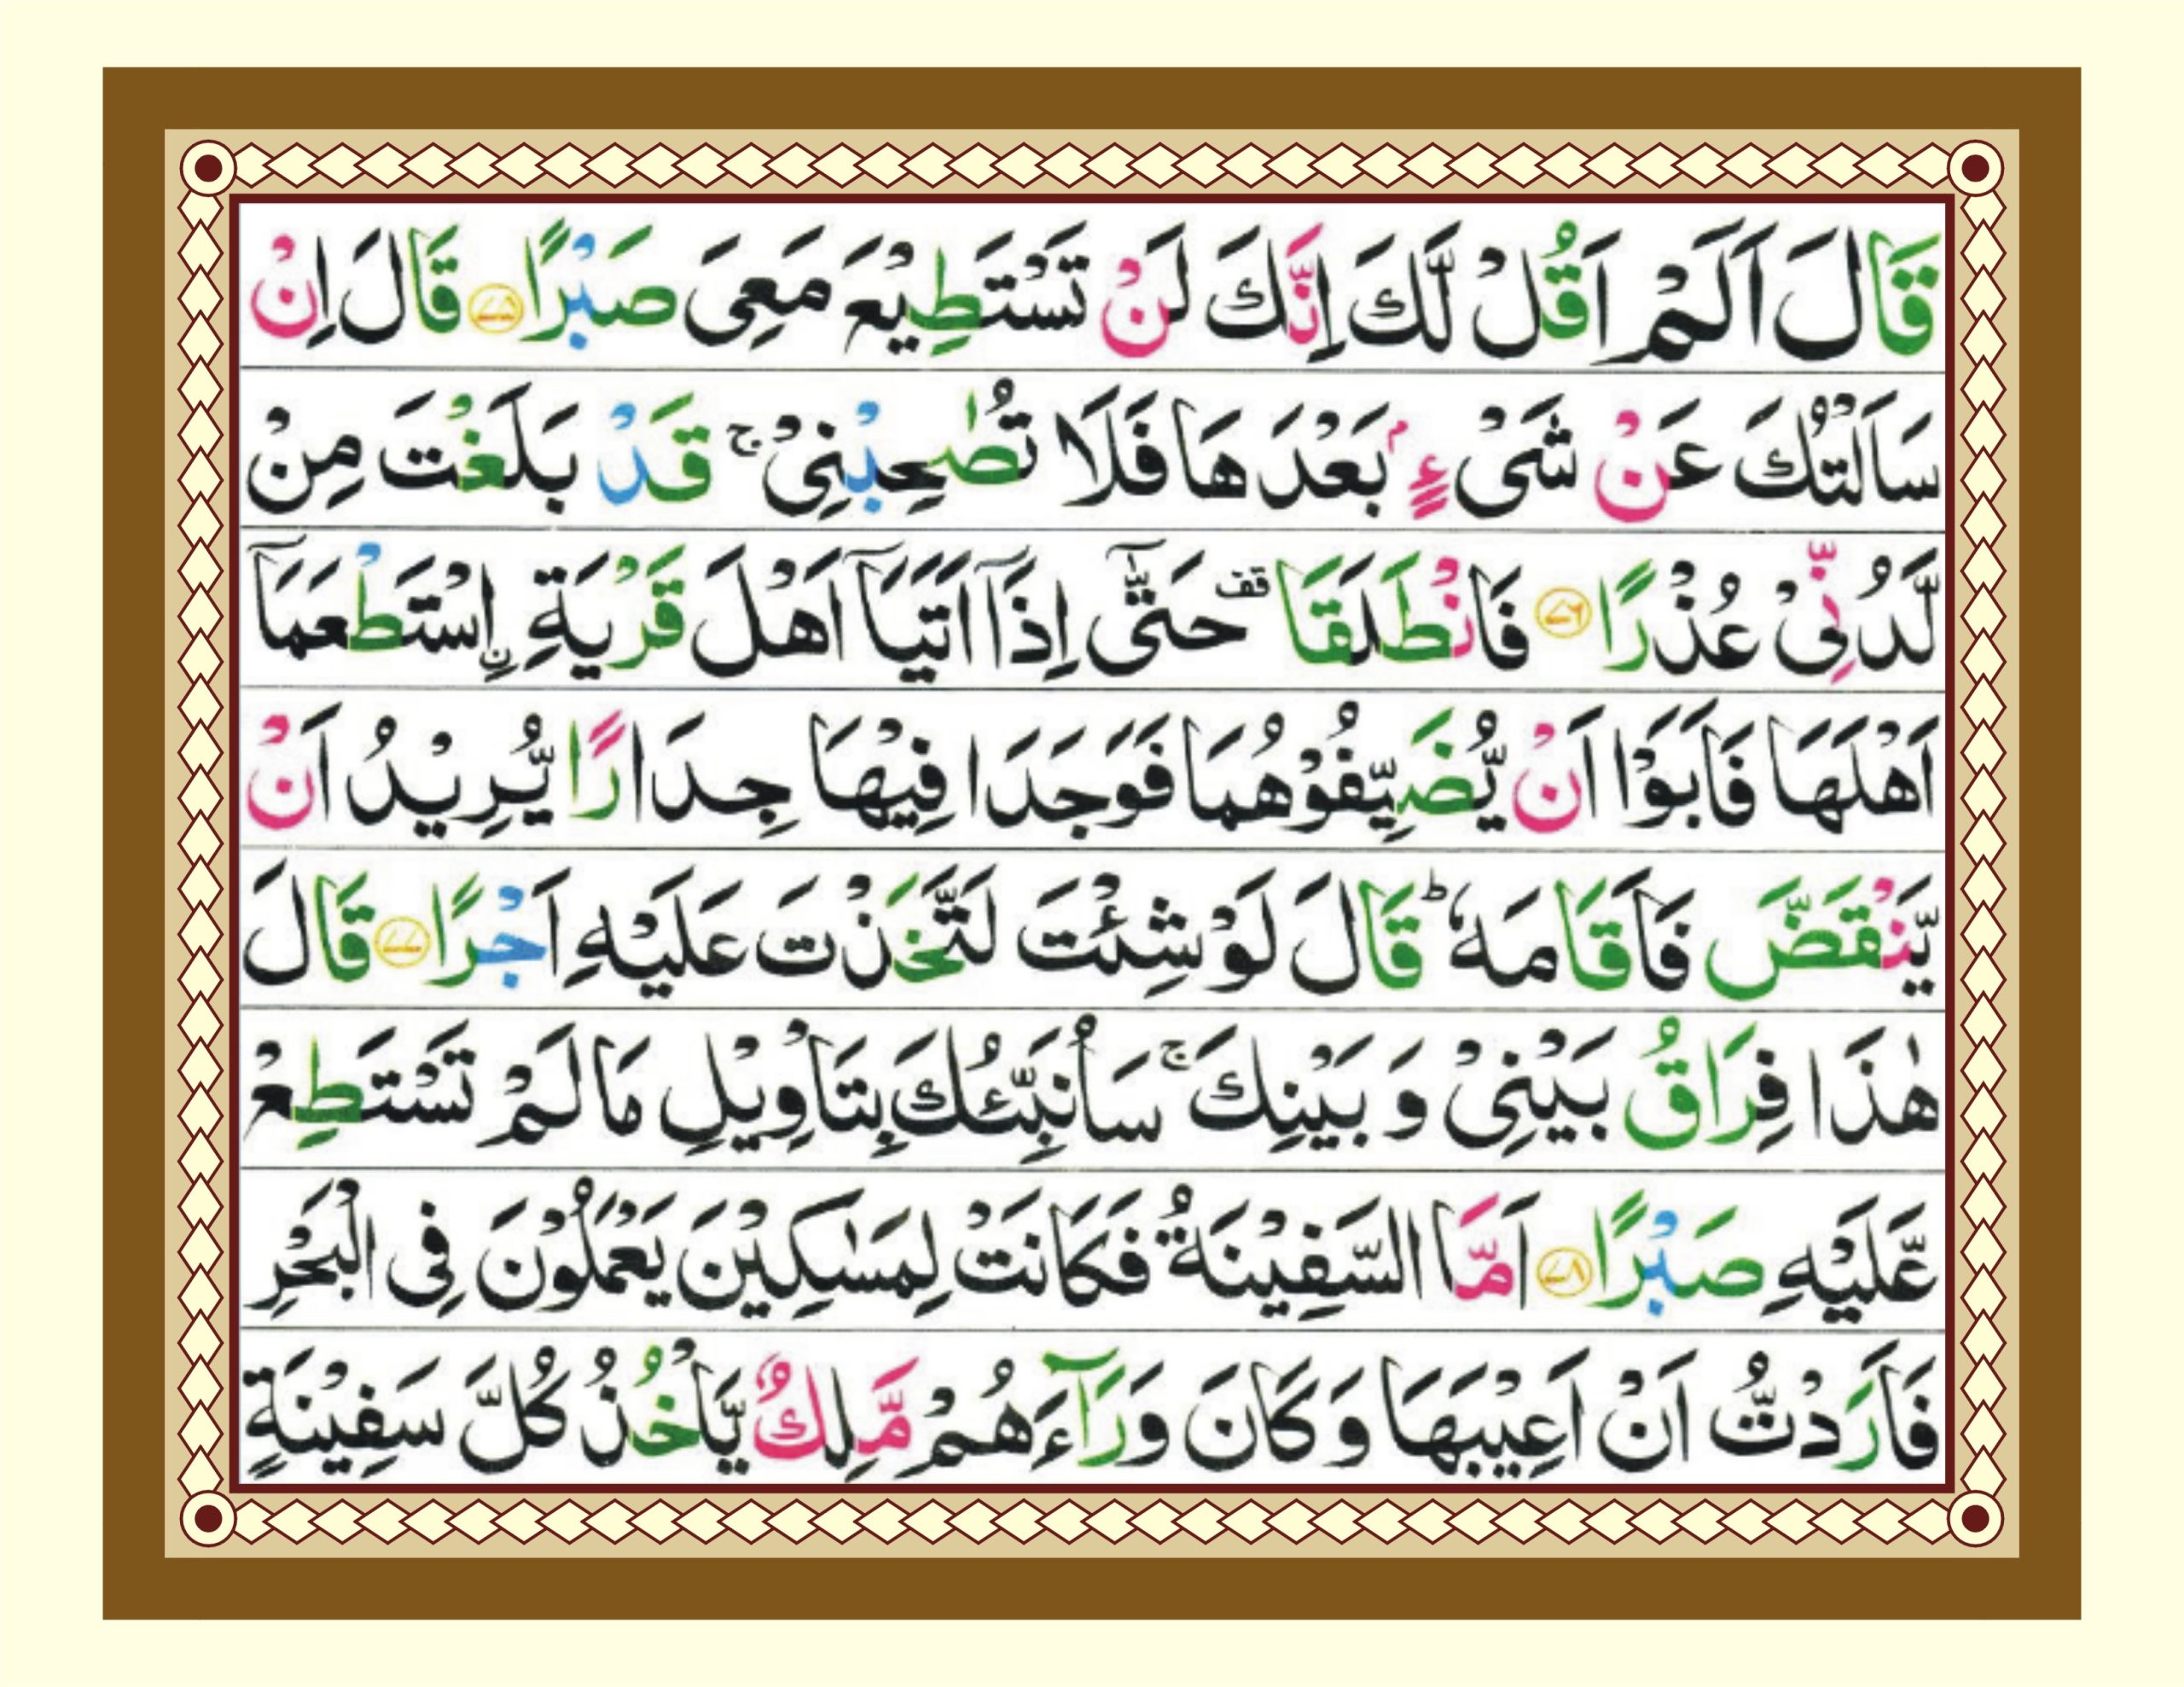 قَالَ اَلَمْ اَقُلْ لَّكَ اِنَّكَ لَنْ تَسْتَطِيْعَ مَعِىَ صَبْرًا ۝۷۵ قَالَ اِنْ
سَاَلْتُكَ عَنْ شَىْءٍۭ بَعْدَهَا فَلَا تُصٰحِبْنِىْ ۚ قَدْ بَلَغْتَ مِنْ
لَّدُنِّىْ عُذْرًا ۝۷۶ فَانْطَلَقَا ۥقف حَتّٰٓى اِذَآ اَتَيَآ اَهْلَ قَرْيَةِ ۨاسْتَطْعَمَآ
اَهْلَهَا فَاَبَوْا اَنْ يُّضَيِّفُوْهُمَا فَوَجَدَا فِيْهَا جِدَارًا يُّرِيْدُ اَنْ
يَّنْقَضَّ فَاَقَامَهٗ ؕ قَالَ لَوْ شِئْتَ لَتَّخَذْتَ عَلَيْهِ اَجْرًا ۝۷۷ قَالَ
هٰذَا فِرَاقُ بَيْنِىْ وَ بَيْنِكَ ۚ سَاُنَبِّئُكَ بِتَاْوِيْلِ مَا لَمْ تَسْتَطِعْ
عَّلَيْهِ صَبْرًا ۝۷۸ اَمَّا السَّفِيْنَةُ فَكَانَتْ لِمَسٰكِيْنَ يَعْمَلُوْنَ فِى الْبَحْرِ
فَاَرَدْتُّ اَنْ اَعِيْبَهَا وَ كَانَ وَرَآءَهُمْ مَّلِكٌ يَّاْخُذُ كُلَّ سَفِيْنَةٍ